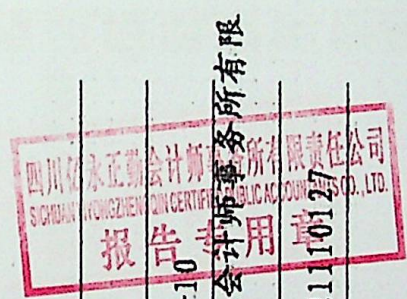 四川亿永正勤会计师事务所有限责任公司
SICHUAN YIYONGZHENGQIN CERTIFIED PUBLIC ACCOUNTANTS CO., LTD.
报告专用章
10
会计师事务所有限
11110127